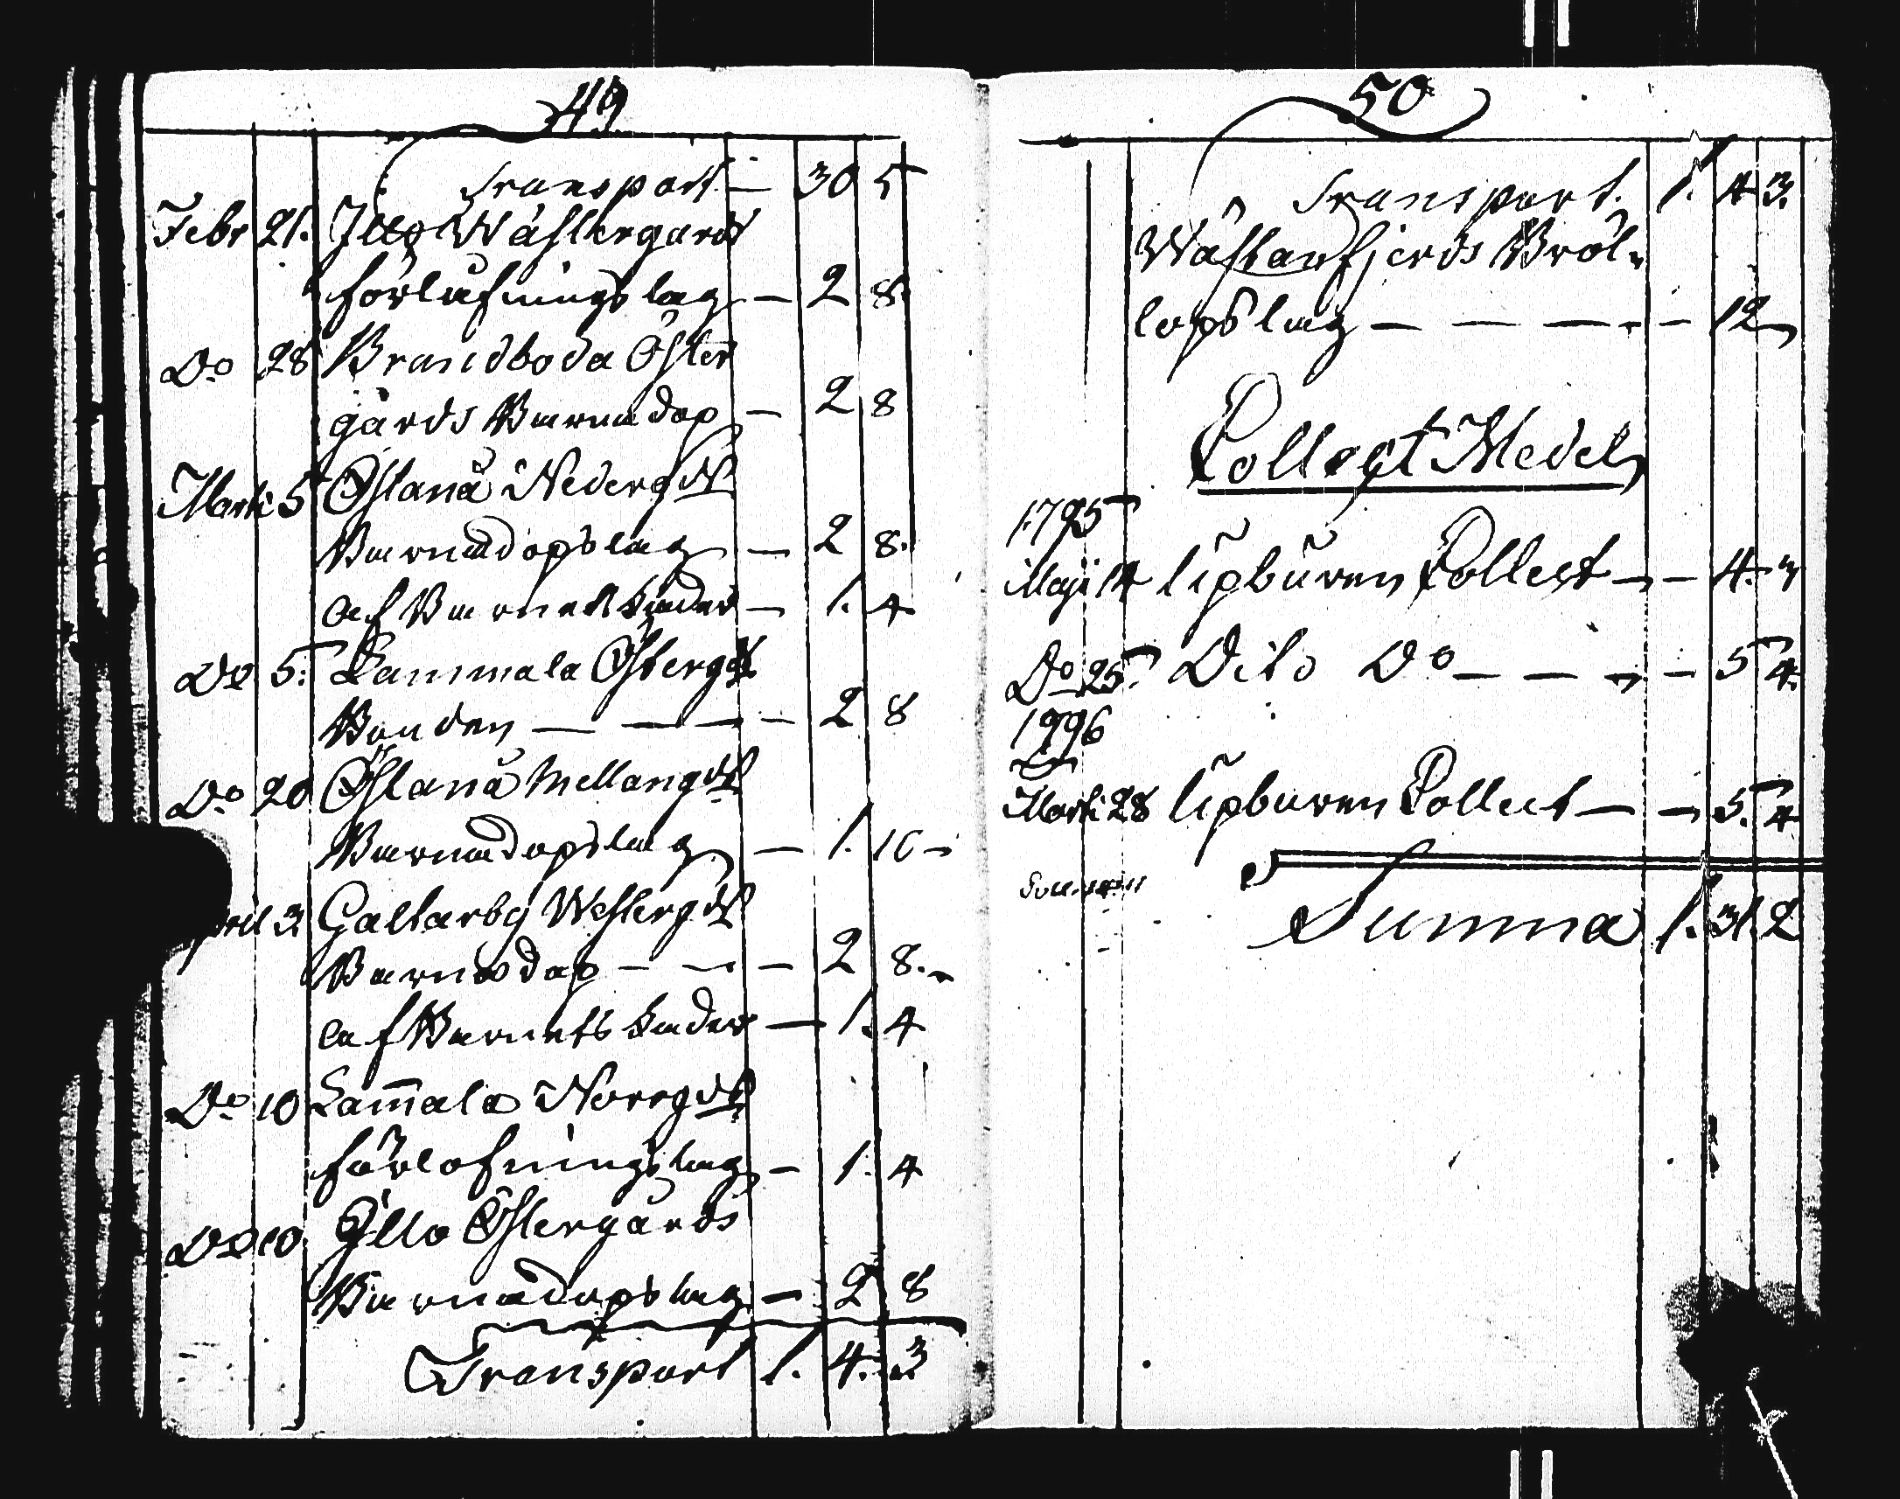 49
Transport — 30 5
Febr 21. Illo Wästergards
förlåfningslag — 2 8.
Do 28 Brandboda Öster
gårds Barnadop — 2 8
Marti 5 Östanå Nedergds
Barnadopslag — 2 8.
af Barnets fader — 1. 4
Do 5. Lammala Östergds
Bonden — — — — 2 8
Do 20 Östanå Mellangds
Barnadopslag — 1. 10
April 3 Galtarby Westergds
Barnadop — — — 2 8.
af Barnets fader — 1. 4
Do 10 Lam̄ala Norrgds
förlofningslag — 1. 4
Do 10 Illo Östergårds
Barnadopslag — 2 8
Transport 1. 4. 3
50
Transport. 1. 4 3.
Wästanfjerds Bröl-
lopslag — — — — — 12
Collect Medel
1795
Maji 14 Ljusburen Collect — — 4. 3
Do 25. Dito Do — — — — 5 4.
1796
Marti 28 Ljusburen Collect — — 5. 4
Summa 1. 31. 2